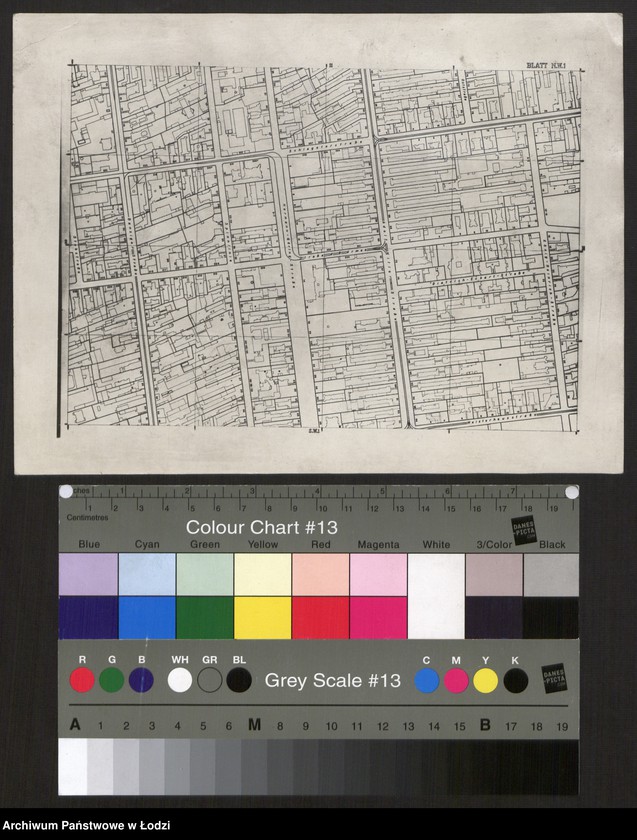 BLATT N.W.1
S.W.1
ches 1 2 3 4 5 6 7
1 2 3 4 5 6 7 8 9 10 11 12 13 14 15 16 17 18 19
Centimetres
Colour Chart #13
DANES PICTA
Blue Cyan Green Yellow Red Magenta White 3/Color Black
R G B WH GR BL Grey Scale #13 C M Y K
DANES PICTA
A 1 2 3 4 5 6 M 8 9 10 11 12 13 14 15 B 17 18 19
Archiwum Państwowe w Łodzi